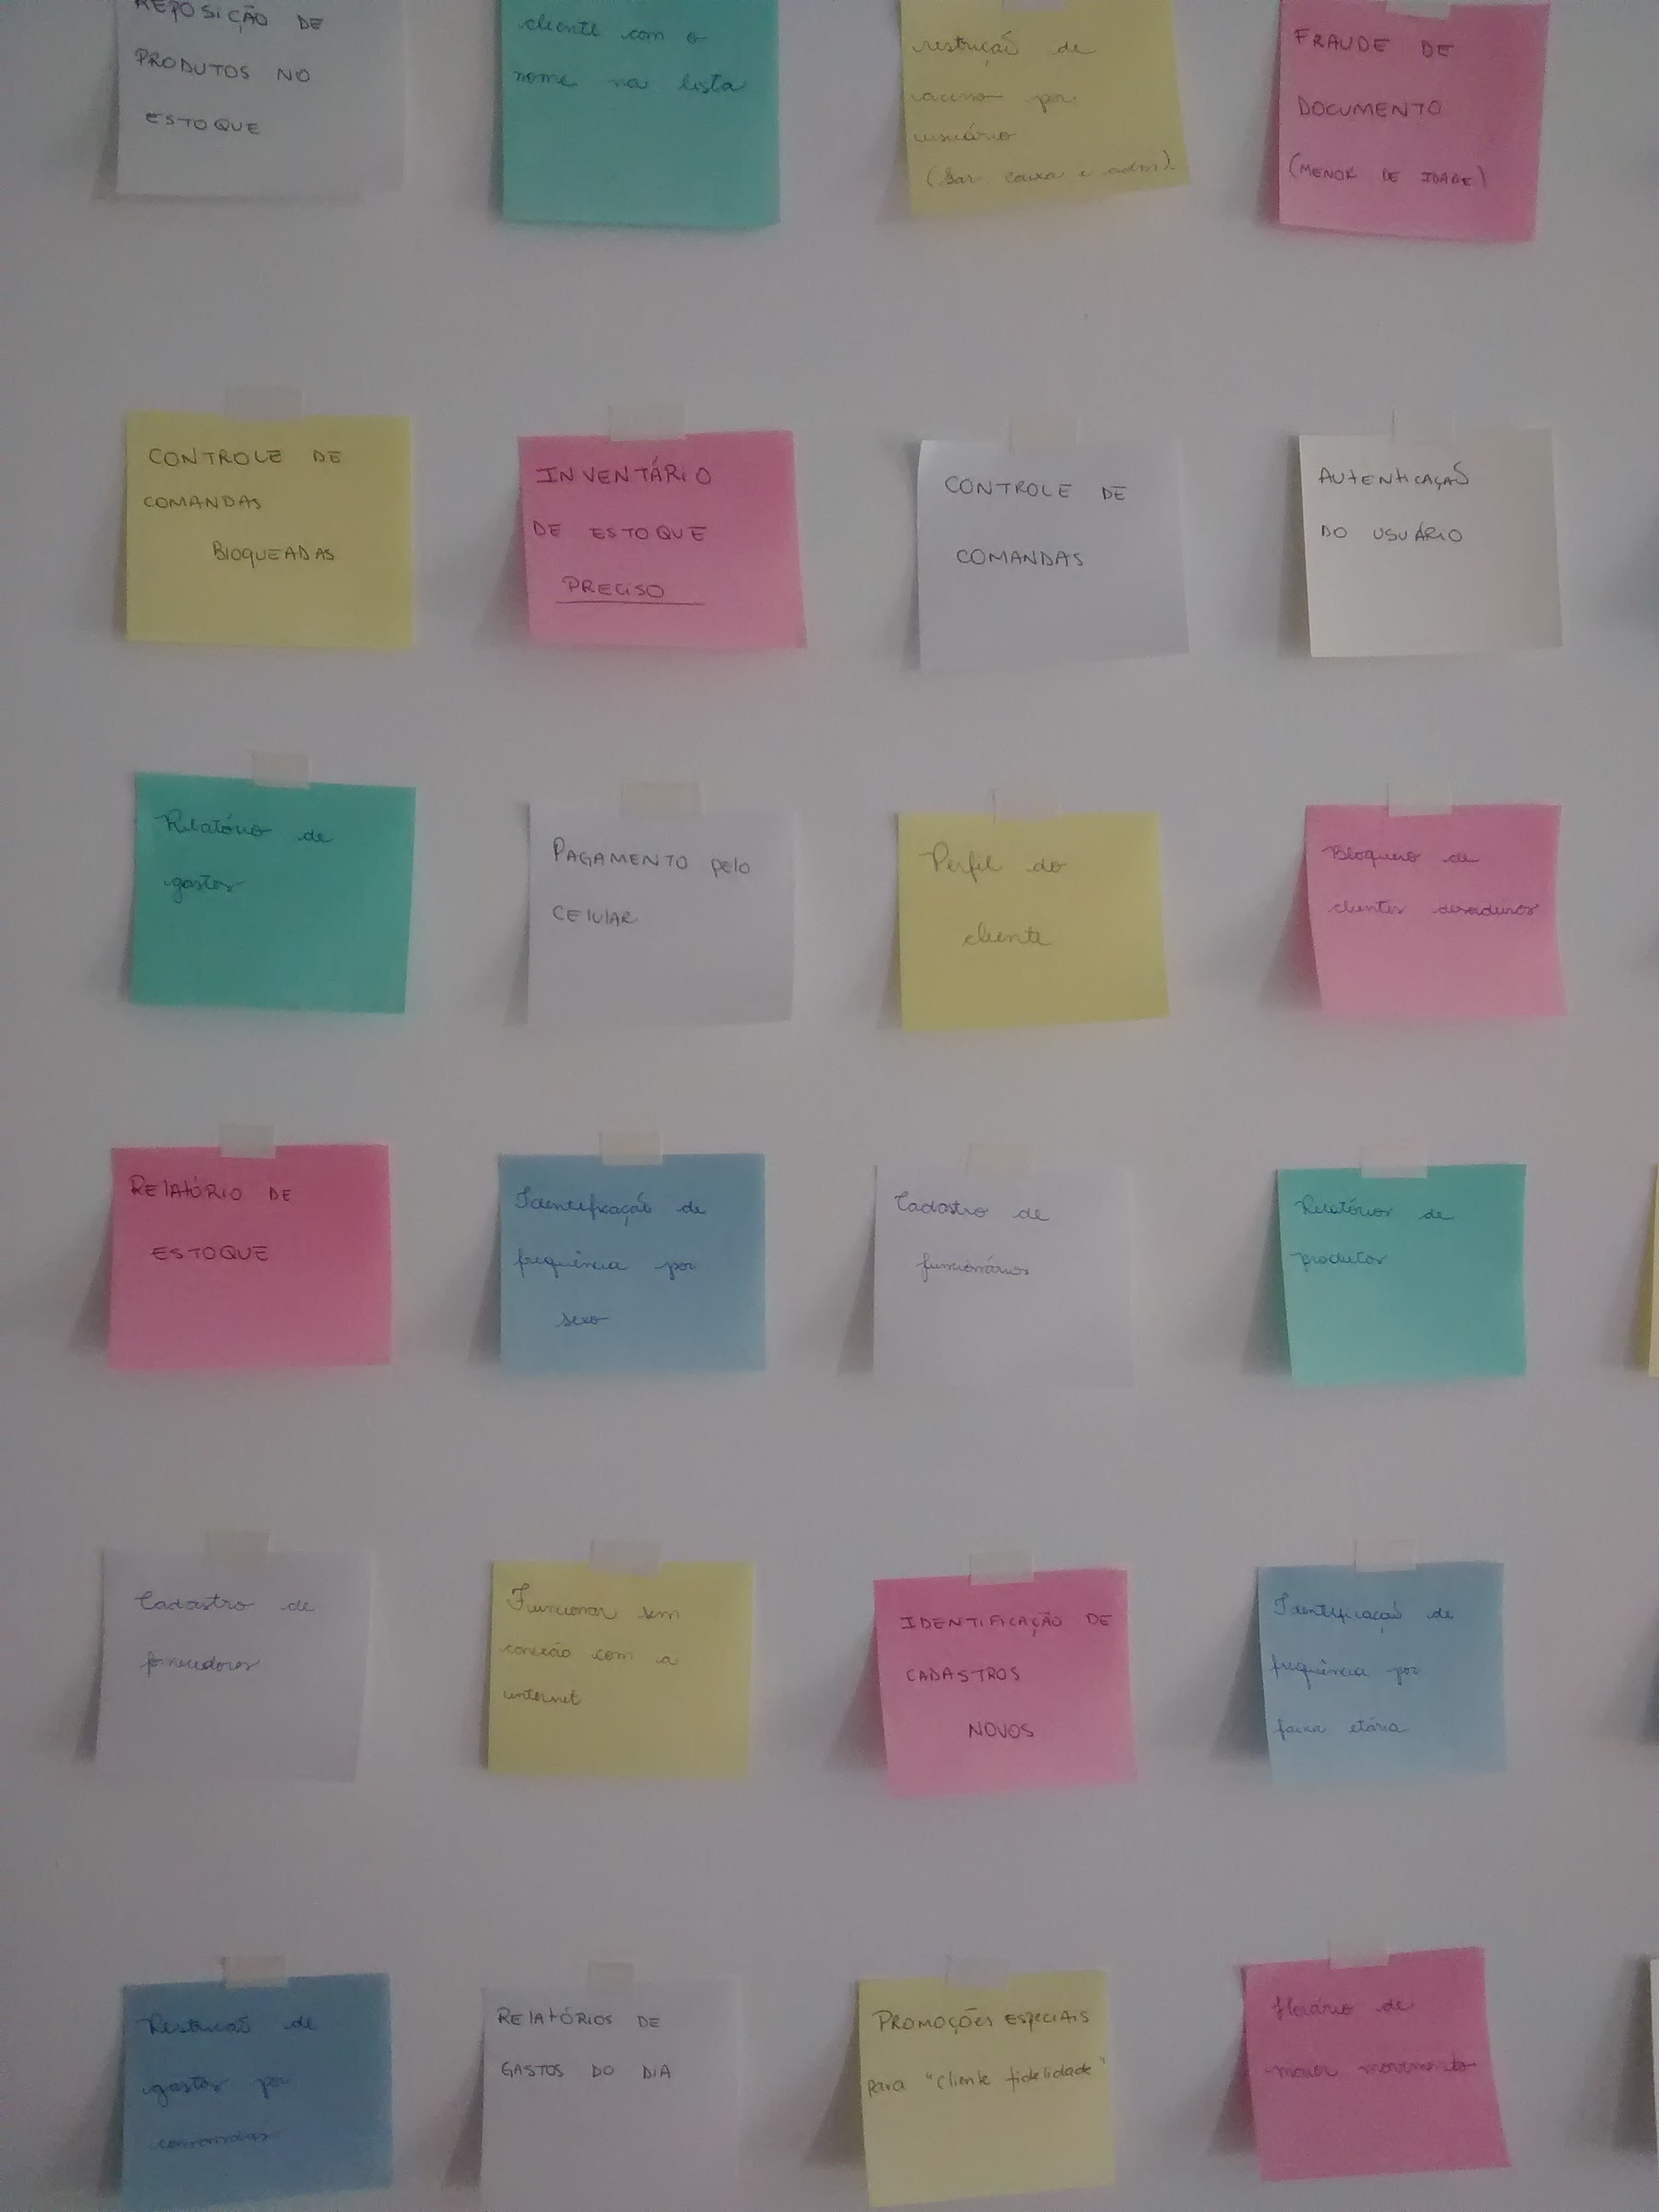 REPOSIÇÃO DE
PRODUTOS NO
ESTOQUE
cliente com o
nome na lista
restrição de
acesso por
usuário
(bar caixa e adm)
FRAUDE DE
DOCUMENTO
(MENOR DE IDADE)
CONTROLE DE
COMANDAS
BLOQUEADAS
INVENTÁRIO
DE ESTOQUE
PRECISO
CONTROLE DE
COMANDAS
AUTENTICAÇÃO
DO USUÁRIO
Relatório de
gastos
PAGAMENTO pelo
CELULAR
Perfil do
cliente
Bloqueio de
clientes devedores
RELATÓRIO DE
ESTOQUE
Identificação de
frequência por
sexo
Cadastro de
funcionários
Relatórios de
produtos
Cadastro de
fornecedores
Funcionar sem
conexão com a
internet
IDENTIFICAÇÃO DE
CADASTROS
NOVOS
Identificação de
frequência por
faixa etária
Restrição de
gastos por
comandas
RELATÓRIOS DE
GASTOS DO DIA
PROMOÇÕES ESPECIAIS
para "Cliente fidelidade"
Horário de
maior movimento